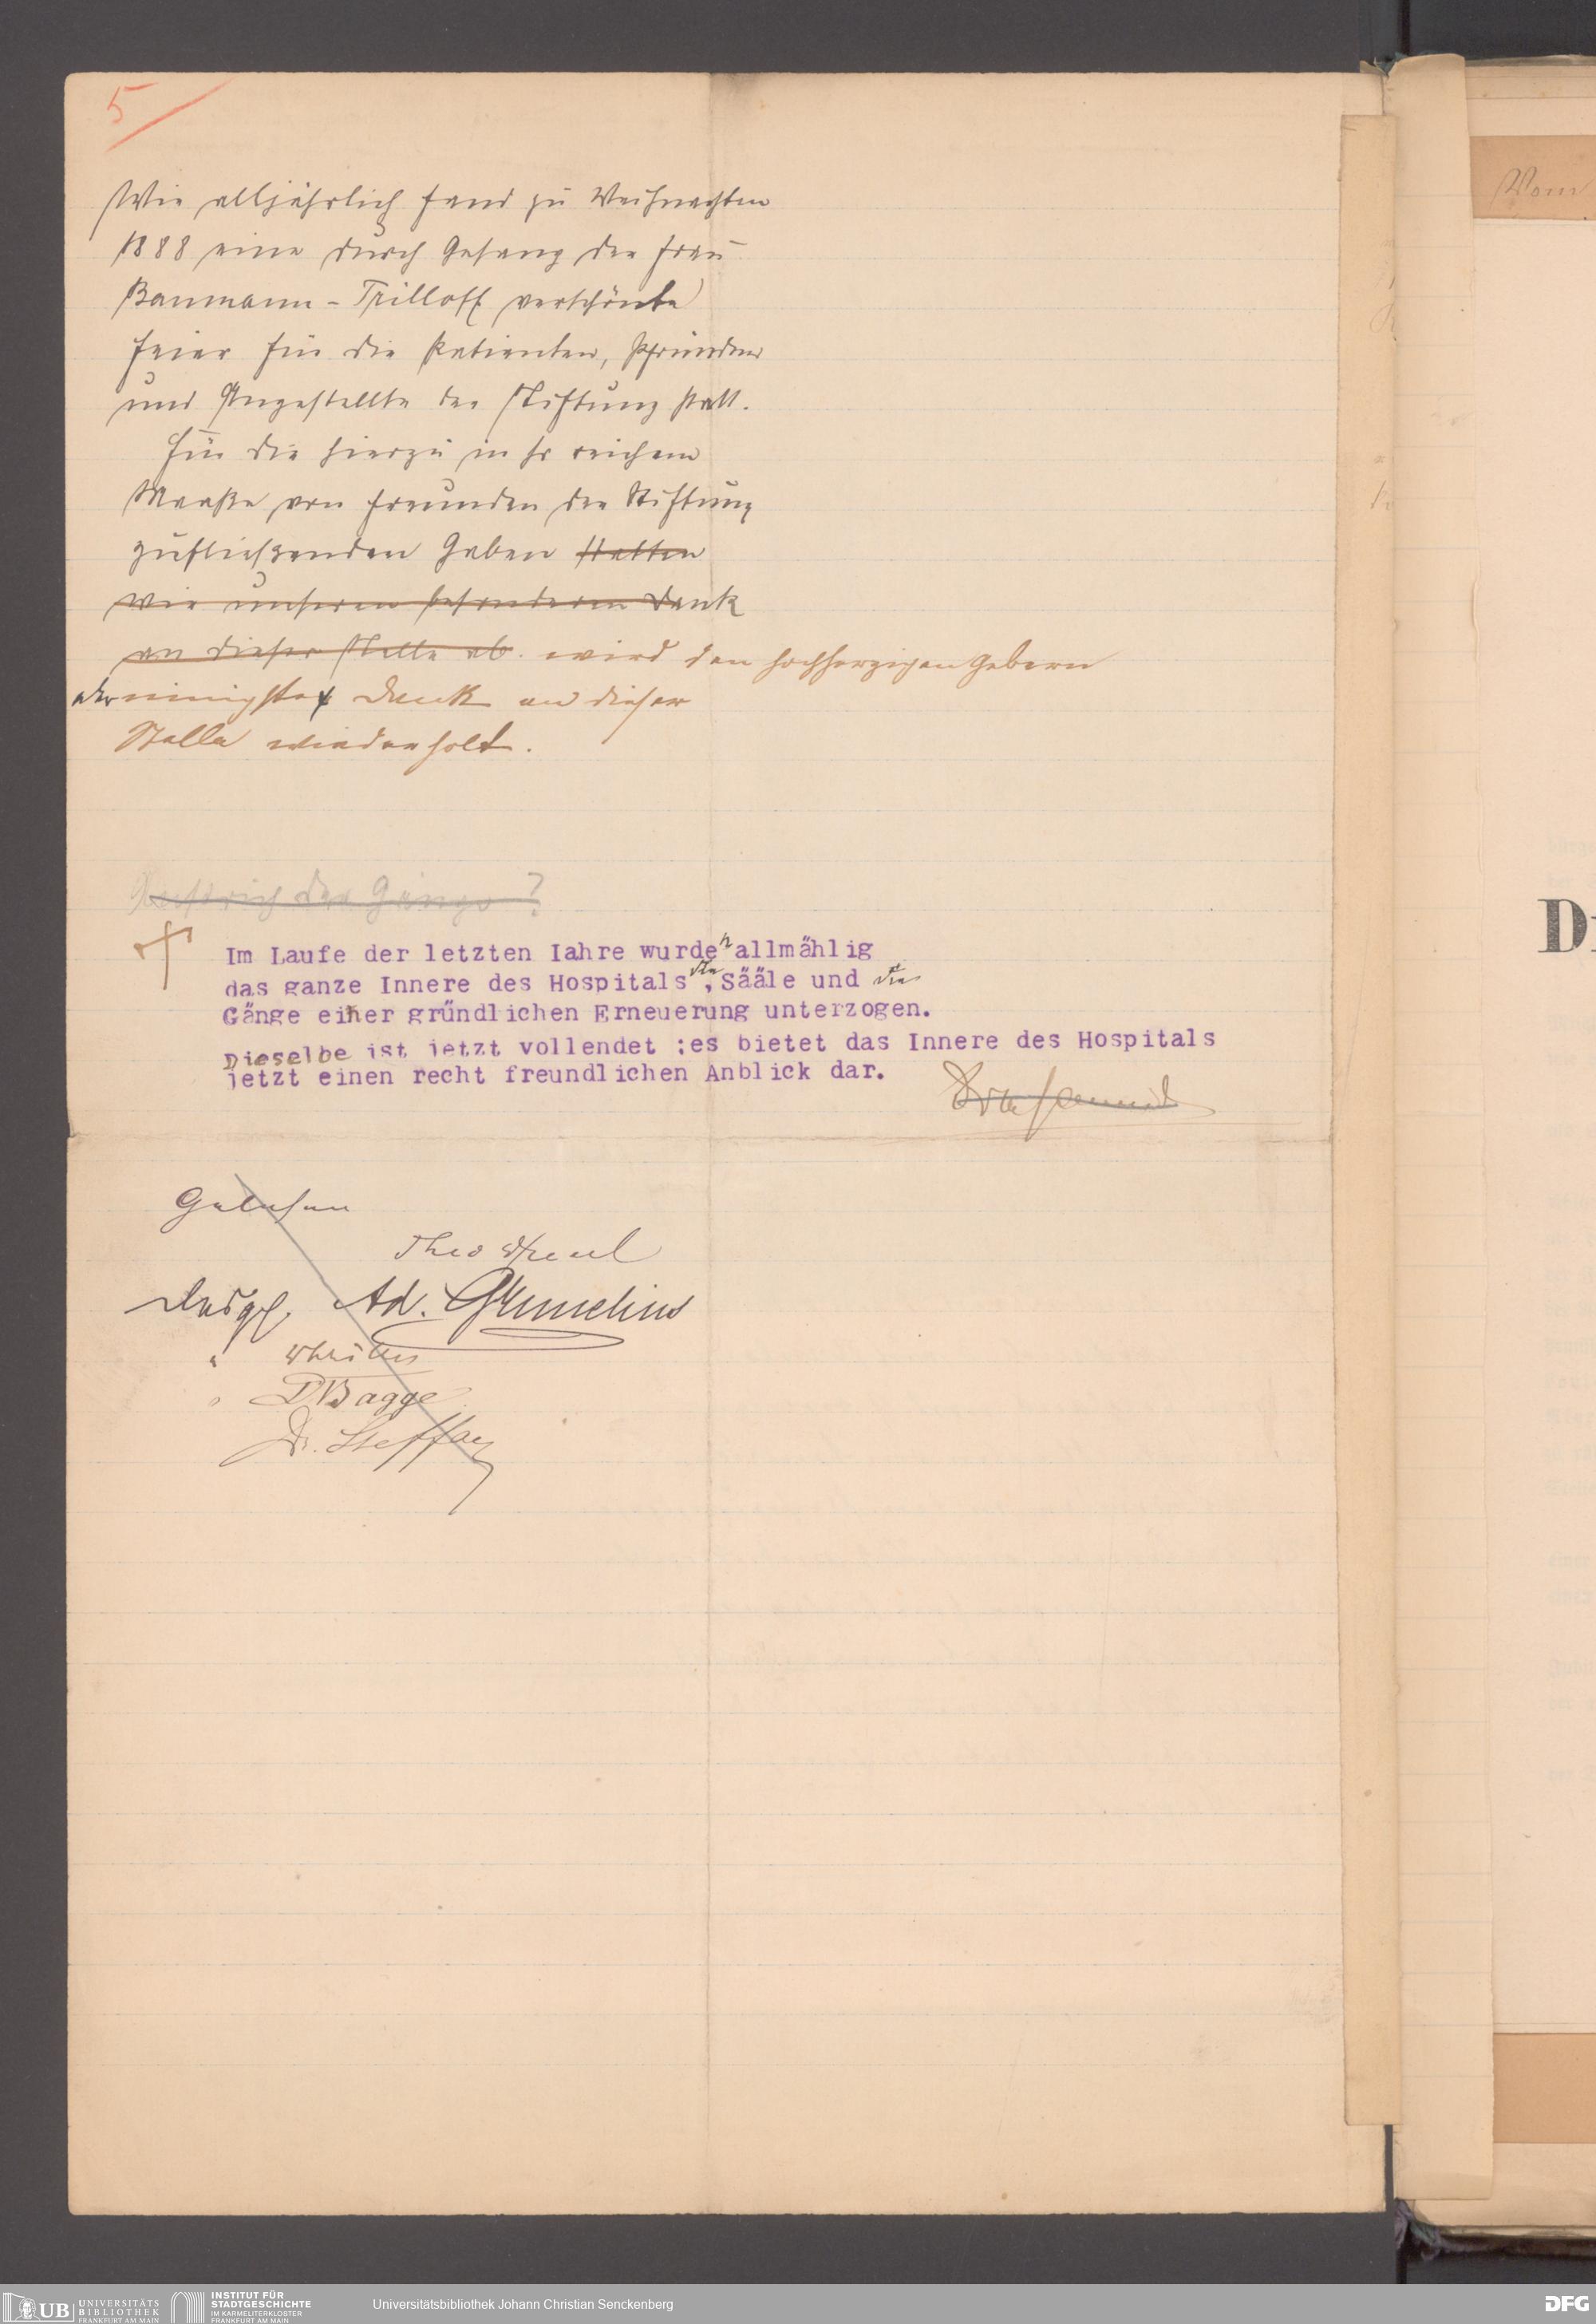 5
Wie alljährlich fand zu Weihnachten
1888 eine durch Gesang der Frau
Baumann-Trilloff verschönte
Feier für die Patienten, Pfründner
und Angestellte der Stiftung statt.
Für die hierzu in so reichem
Maaße von Freunden der Stiftung
zufließenden Gaben statten
wir unseren besonderen Dank
an dieser Stelle ab. wird den hochherzigen Gebern
der innigste Dank an dieser
Stelle wiederholt.
der Gänge?
Im Laufe der letzten Iahre wurden allmählig
das ganze Innere des Hospitals, die Sääle und die
Gänge einer gründlichen Erneuerung unterzogen.
Dieselbe ist jetzt vollendet ;es bietet das Innere des Hospitals
jetzt einen recht freundlichen Anblick dar.
Gelesen
Theo
Desgl. Ad. Gmelius
"
" Bagge
Dr. Steffan
Vom
UB UNIVERSITÄTS
BIBLIOTHEK
FRANKFURT AM MAIN
INSTITUT FÜR
STADTGESCHICHTE
IM KARMELITERKLOSTER
FRANKFURT AM MAIN
Universitätsbibliothek Johann Christian Senckenberg
DFG